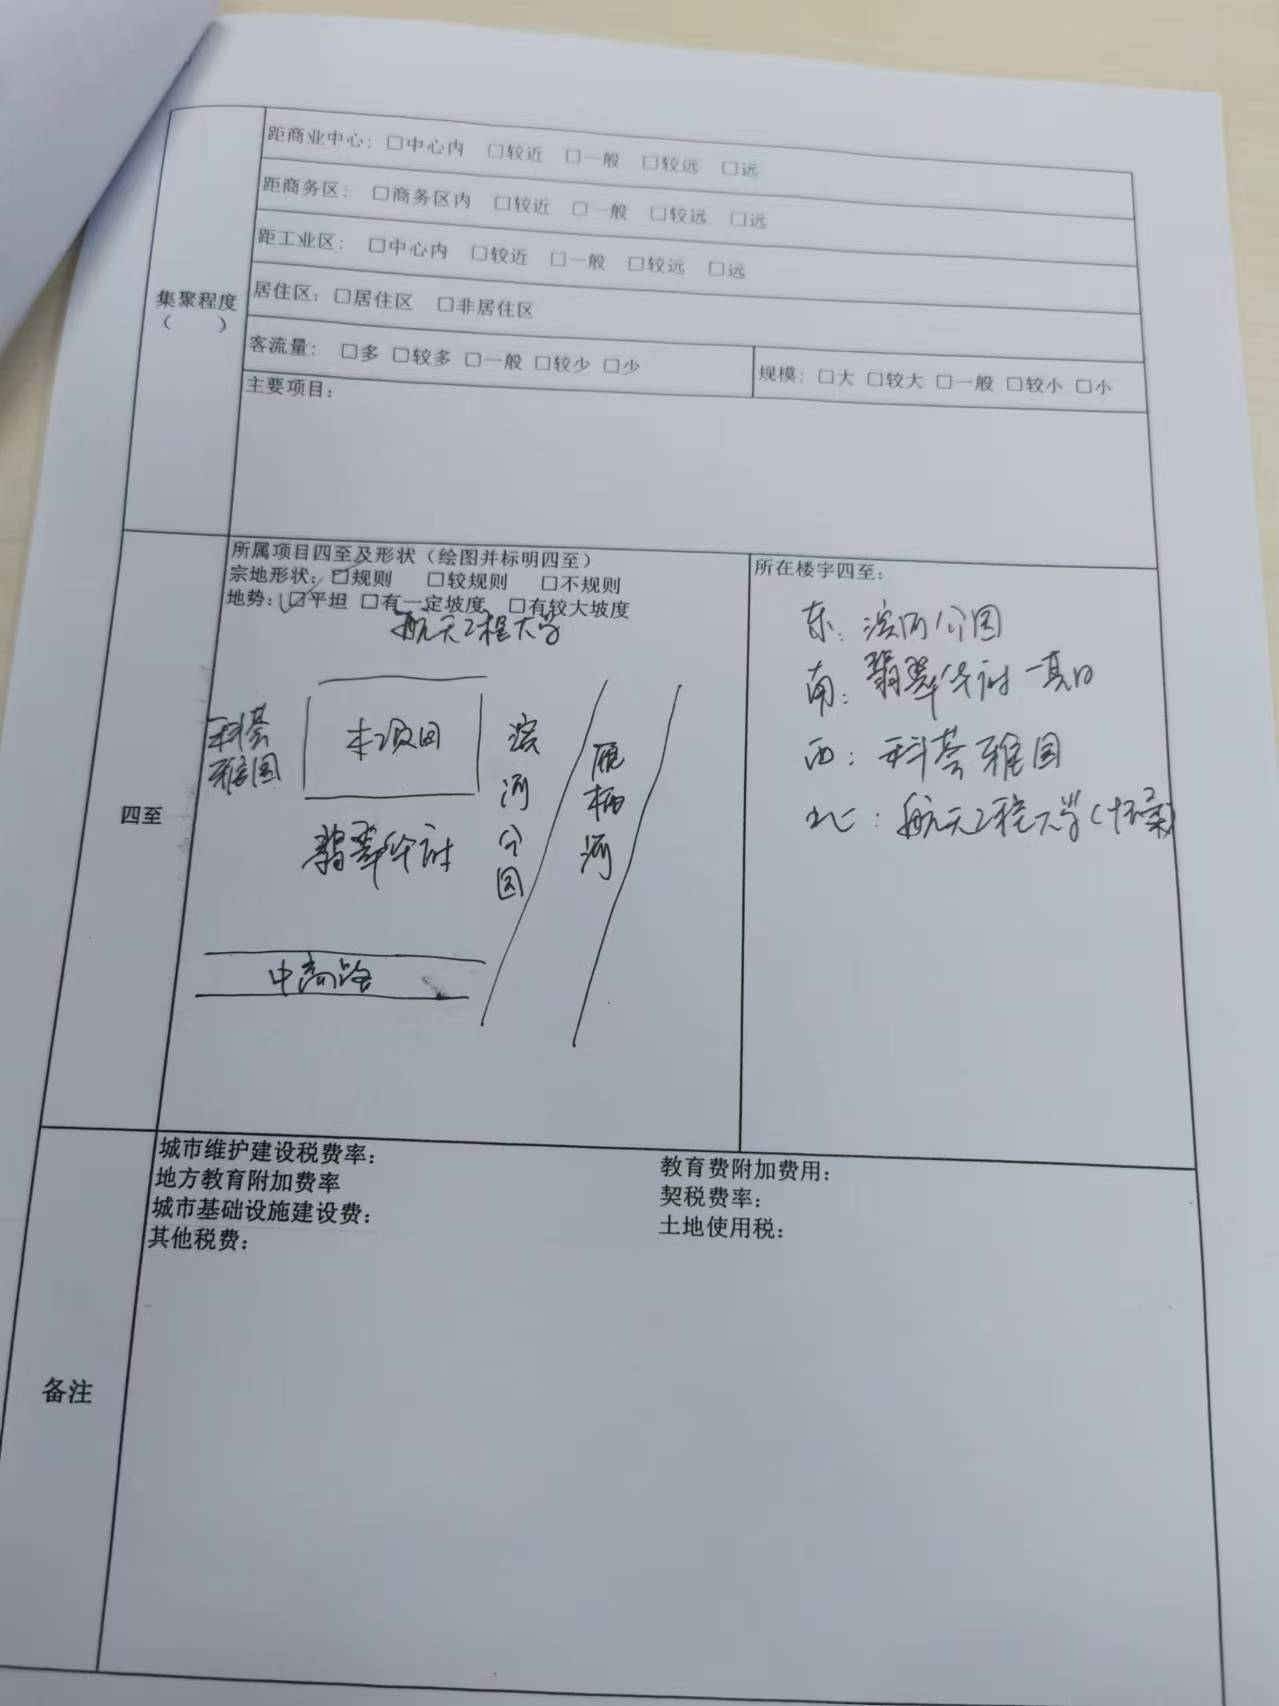 距商业中心：□中心内 □较近 □一般 □较远 □远
距商务区：□商务区内 □较近 □一般 □较远 □远
距工业区：□中心内 □较近 □一般 □较远 □远
集聚程度
（ ）
居住区：□居住区 □非居住区
客流量：□多 □较多 □一般 □较少 □少
规模：□大 □较大 □一般 □较小 □小
主要项目：
四至
所属项目四至及形状（绘图并标明四至）
宗地形状：□规则 □较规则 □不规则
地势：□平坦 □有一定坡度 □有较大坡度
航天工程大学
科荟
雅园
本项目
滨河公园
雁栖河
翡翠华府
中高路
所在楼宇四至：
东：滨河公园
南：翡翠华府一期
西：科荟雅园
北：航天工程大学（怀柔）
备注
城市维护建设税费率：
教育费附加费用：
地方教育附加费率
契税费率：
城市基础设施建设费：
土地使用税：
其他税费：